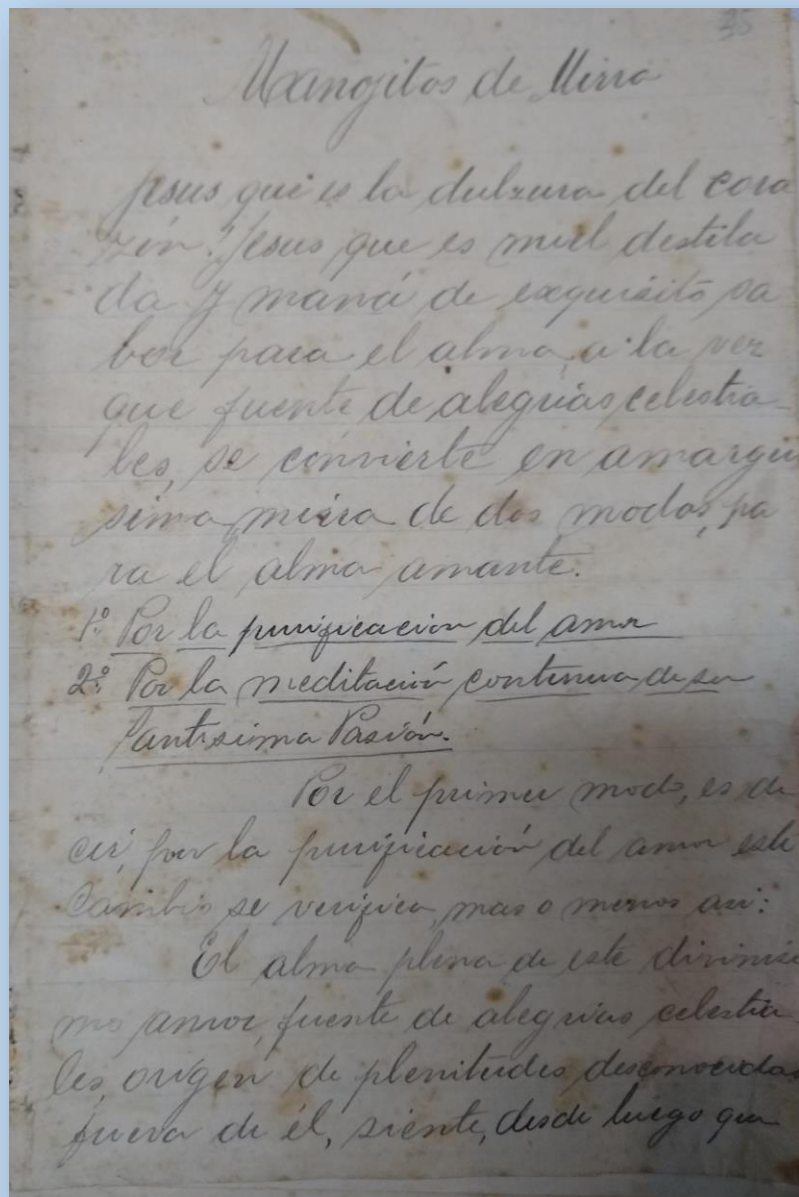 35
Manojitos de Mirra
Jesus que es la dulzura del cora
zón! Jesus que es miel destila
da y maná de exquisito sa
bor para el alma, a la vez
que fuente de alegrias celestia-
les, se convierte en amargui
sima mirra de dos modos, pa
ra el alma amante.
1º Por la purificacion del amor
2º Por la meditación continua de su
Santisima Pasión.
Por el primer modo, es de
cir, por la purificación del amor este
cambio se verifica, mas o menos asi:
El alma plena de este divinisi
mo amor, fuente de alegrias celestia
les, origen de plenitudes desconocidas
fuera de él, siente, desde luego que